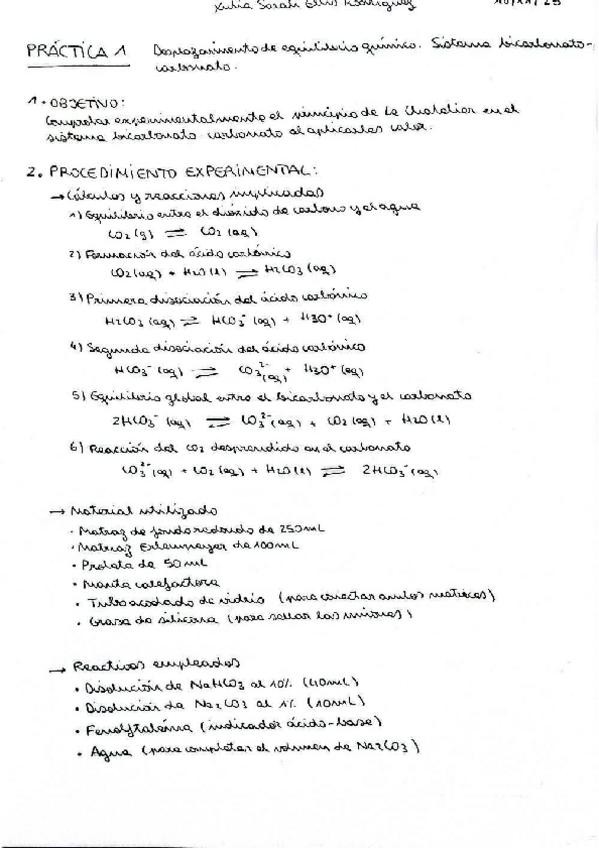 Xulia Sarah Ellis Rodríguez 10/11/25
PRÁCTICA 1 Desplazamiento de equilibrio químico. Sistema bicarbonato-
carbonato.
1. OBJETIVO:
Comprobar experimentalmente el principio de Le Chatelier en el
sistema bicarbonato-carbonato al aplicarles calor.
2. PROCEDIMIENTO EXPERIMENTAL:
→ Cálculos y reacciones implicadas
1) Equilibrio entre el dióxido de carbono y el agua
CO₂(g) ⇌ CO₂(aq)
2) Formación del ácido carbónico
CO₂(aq) + H₂O(l) ⇌ H₂CO₃(aq)
3) Primera disociación del ácido carbónico
H₂CO₃(aq) ⇌ HCO₃⁻(aq) + H₃O⁺(aq)
4) Segunda disociación del ácido carbónico
HCO₃⁻(aq) ⇌ CO₃²⁻(aq) + H₃O⁺(aq)
5) Equilibrio global entre el bicarbonato y el carbonato
2HCO₃⁻(aq) ⇌ CO₃²⁻(aq) + CO₂(aq) + H₂O(l)
6) Reacción del CO₂ desprendido en el carbonato
CO₃²⁻(aq) + CO₂(aq) + H₂O(l) ⇌ 2HCO₃⁻(aq)
→ Material utilizado
· Matraz de fondo redondo de 250mL
· Matraz Erlenmeyer de 100mL
· Probeta de 50mL
· Manta calefactora
· Tubo acodado de vidrio (para conectar ambos matraces)
· Grasa de silicona (para sellar las uniones)
→ Reactivos empleados
· Disolución de NaHCO₃ al 10% (40mL)
· Disolución de Na₂CO₃ al 1% (10mL)
· Fenolftaleína (indicador ácido-base)
· Agua (para completar el volumen de Na₂CO₃)